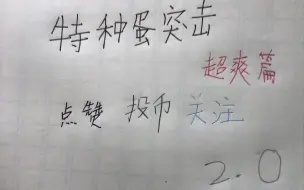 特种蛋突击
超爽篇
点赞 投币 关注
2.0